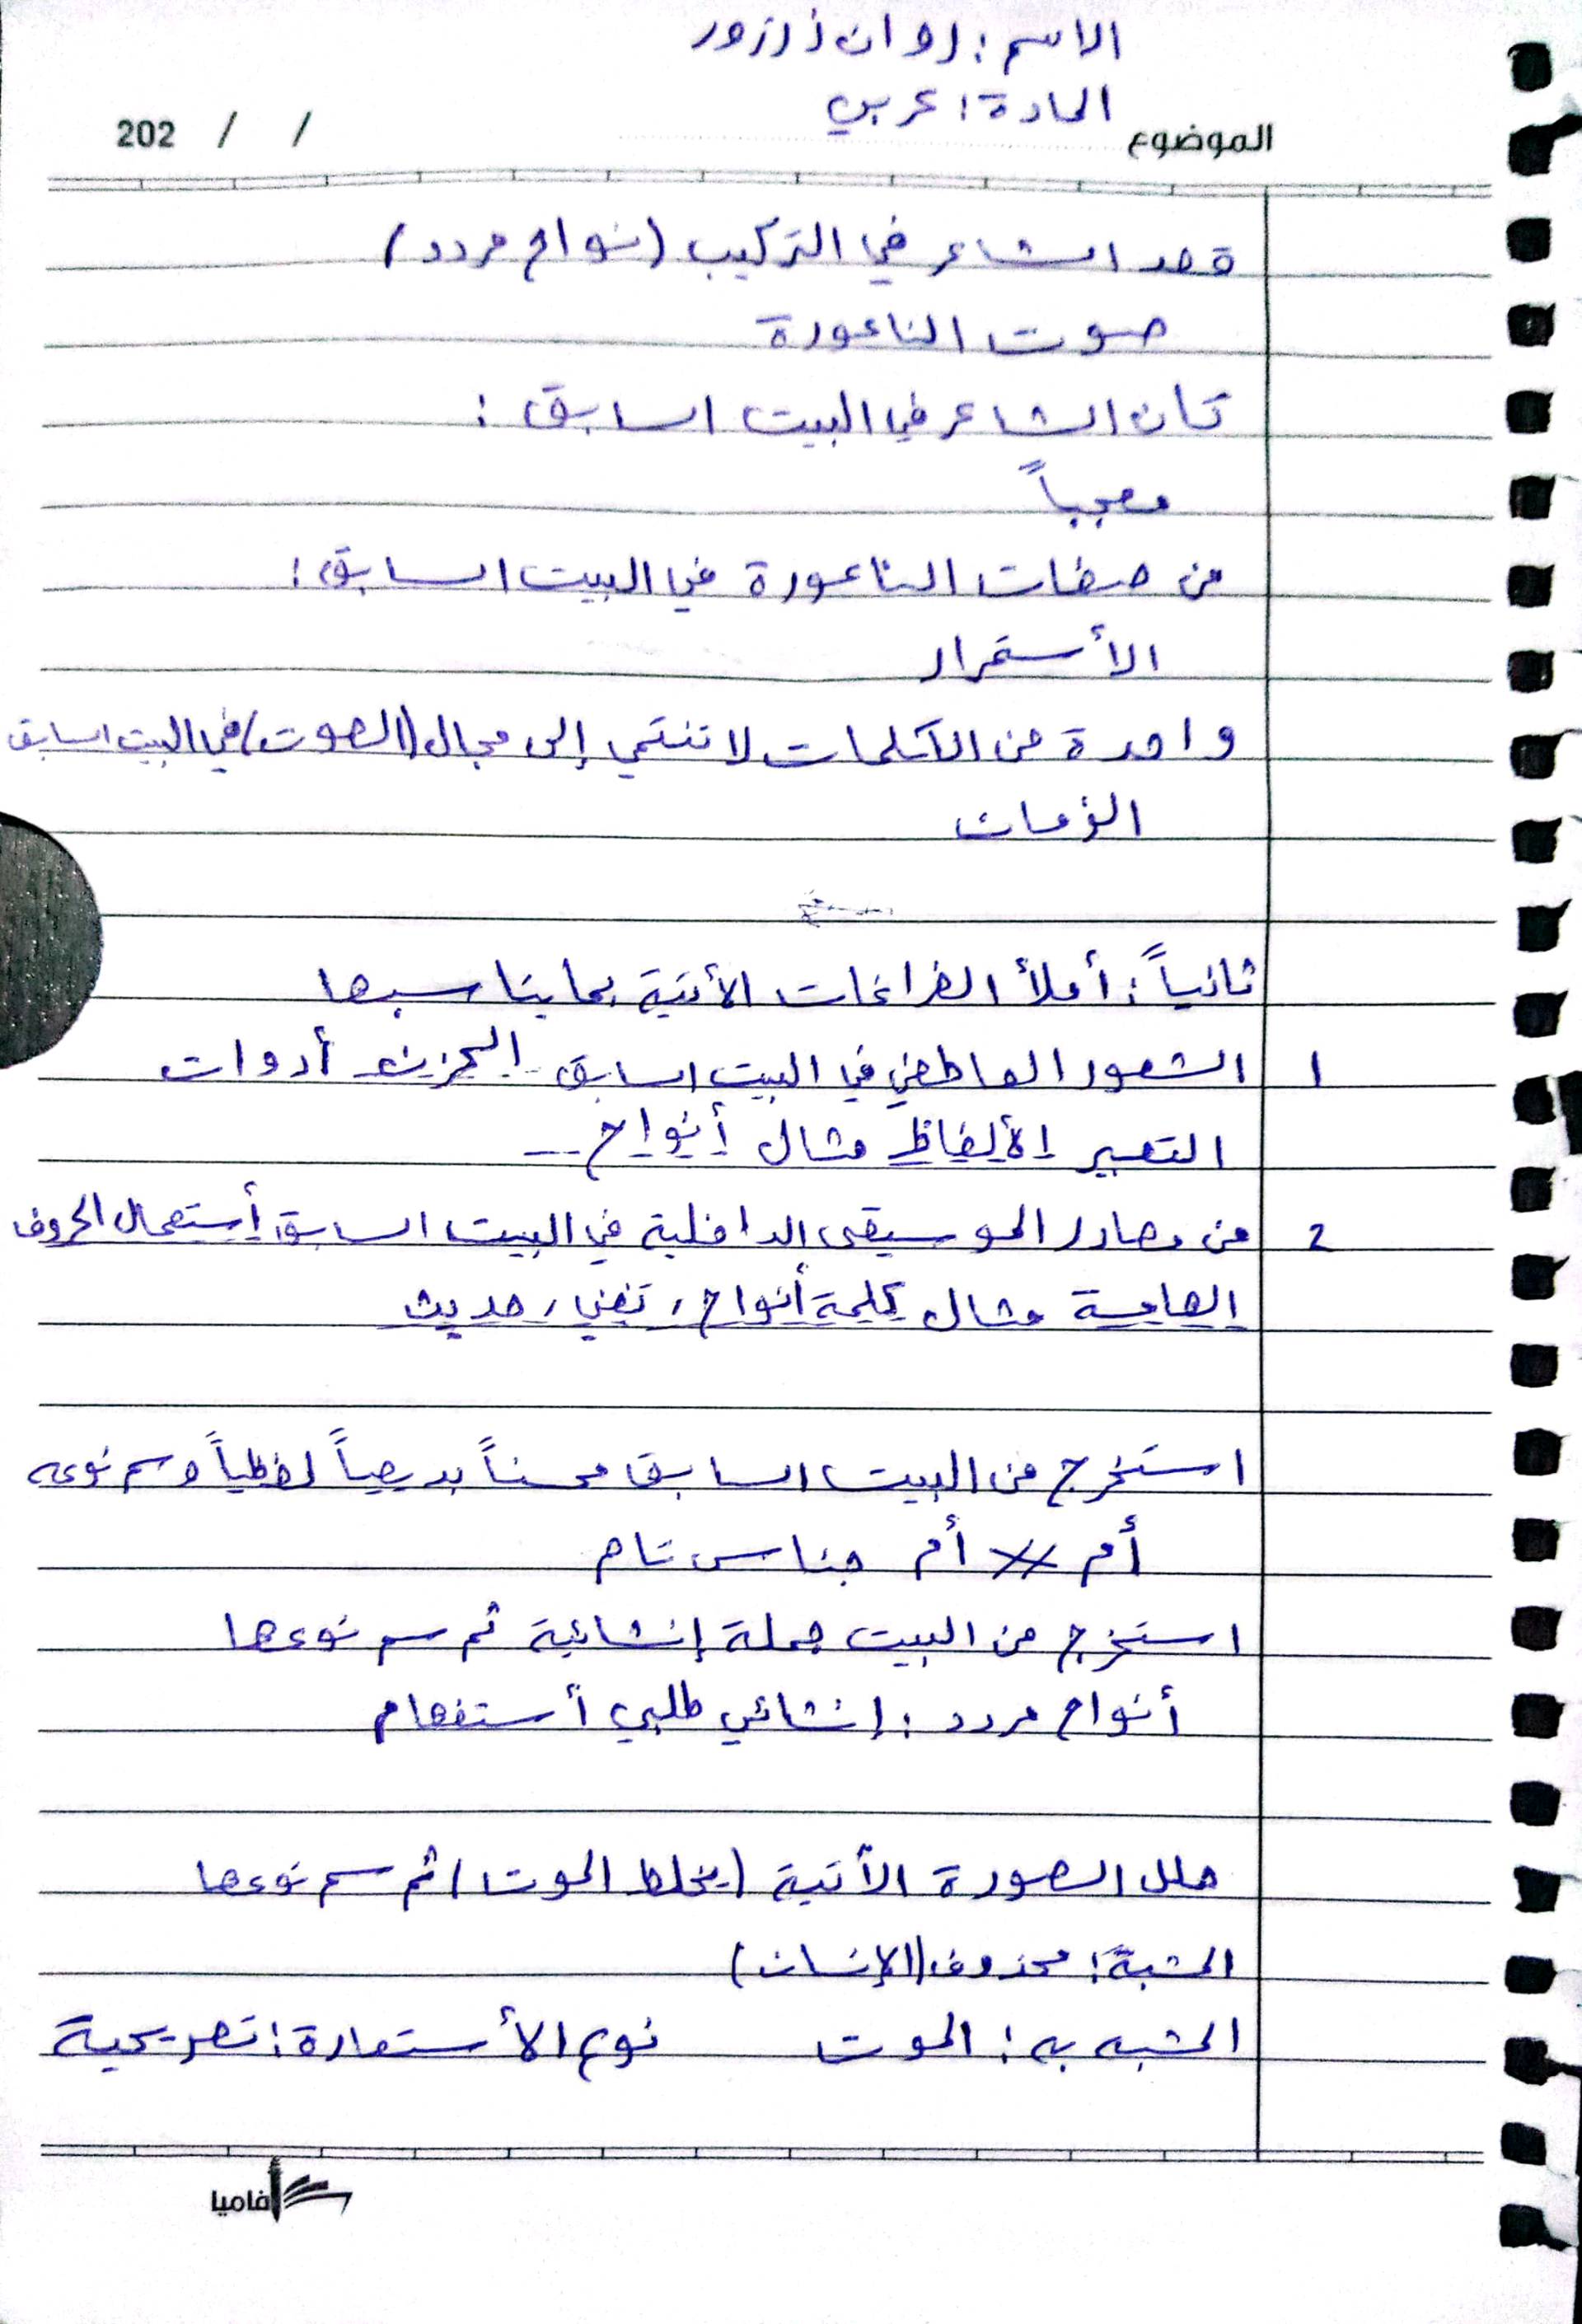 الاسم : روان زرزور
المادة : عربي
الموضوع
202 / /
قصد الشاعر في التركيب (نواح مردد)
صوت الناعورة
كان الشاعر في البيت السابق :
معجباً
من صفات الناعورة في البيت السابق :
الأستمرار
واحدة من الكلمات لا تنتمي إلى مجال (الصوت) في البيت السابق
الزمان
ثانياً : أملأ الفراغات الأتية بما يناسبها
1 الشعور العاطفي في البيت السابق الحزن أدوات
التعبير الألفاظ مثال أنواح --
2 من مصادر الموسيقى الداخلية في البيت السابق أستعمال الحروف
الهامسة مثال كلمة أنواح ، تغني ، حديث
استخرج من البيت السابق محسناً بديعياً لفظياً وسم نوعه
أم // أم جناس تام
استخرج من البيت جملة إنشائية ثم سم نوعها
أنواح مردد : إنشائي طلبي أستفهام
حلل الصورة الأتية (يخلط الموت) ثم سم نوعها
المشبة : محذوف (الإنسان)
المشبه به : الموت نوع الأستعارة : تصريحية
أفاميا